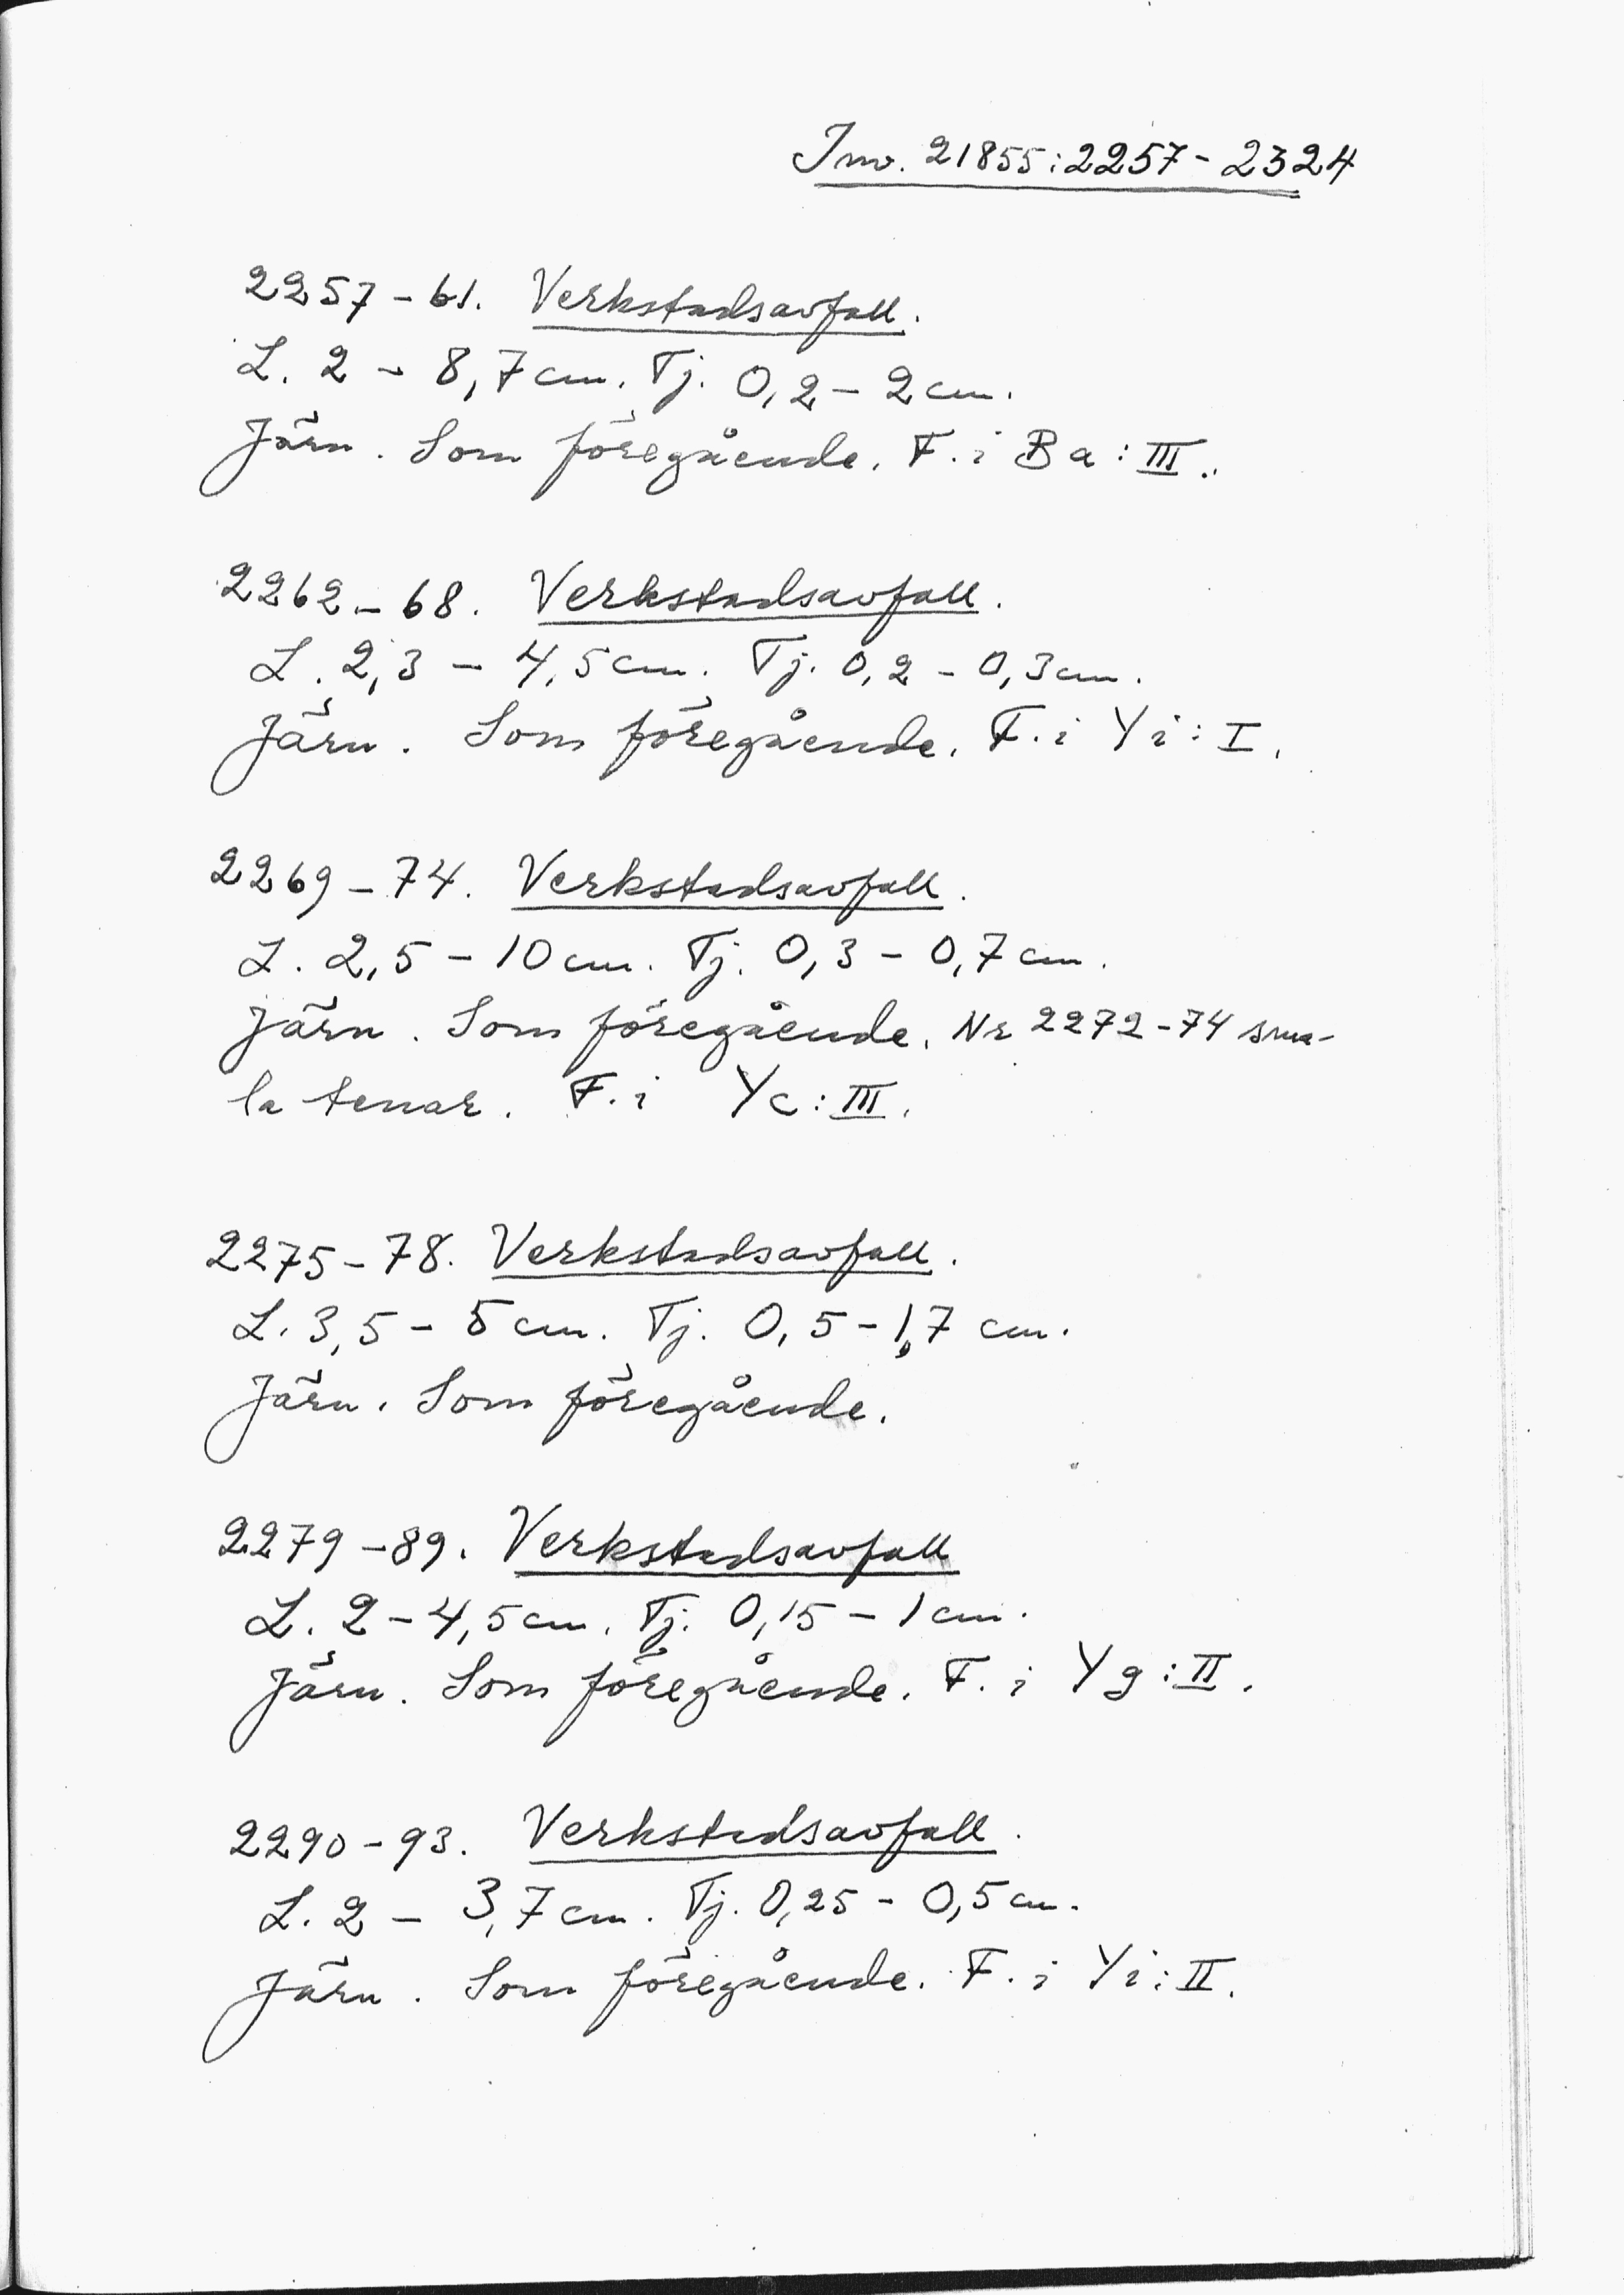 Inv. 21855:2257-2324
2257-61. Verkstadsavfall.
L. 2 - 8,7 cm. Tj. 0,2 - 2 cm.
Järn. Som föregående. F. i Ba: III.
2262-68. Verkstadsavfall.
L. 2,3 - 4,5 cm. Tj. 0,2 - 0,3 cm.
Järn. Som föregående. F. i Yi: I.
2269-74. Verkstadsavfall.
L. 2,5 - 10 cm. Tj. 0,3 - 0,7 cm.
Järn. Som föregående. Nr 2272-74 sma-
la tenar. F. i Yc: III.
2275-78. Verkstadsavfall.
L. 3,5 - 5 cm. Tj. 0,5 - 1,7 cm.
Järn. Som föregående.
2279-89. Verkstadsavfall
L. 2 - 4,5 cm. Tj. 0,15 - 1 cm.
Järn. Som föregående. F. i Yg: II.
2290-93. Verkstadsavfall.
L. 2 - 3,7 cm. Tj. 0,25 - 0,5 cm.
Järn. Som föregående. F. i Yi: II.